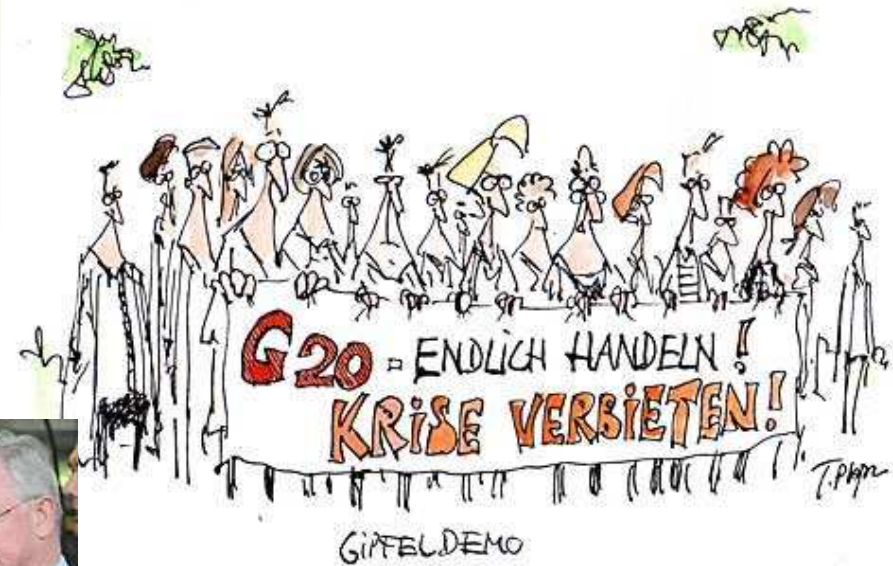 G20 - ENDLICH HANDELN!
KRISE VERBIETEN!
GIPFELDEMO